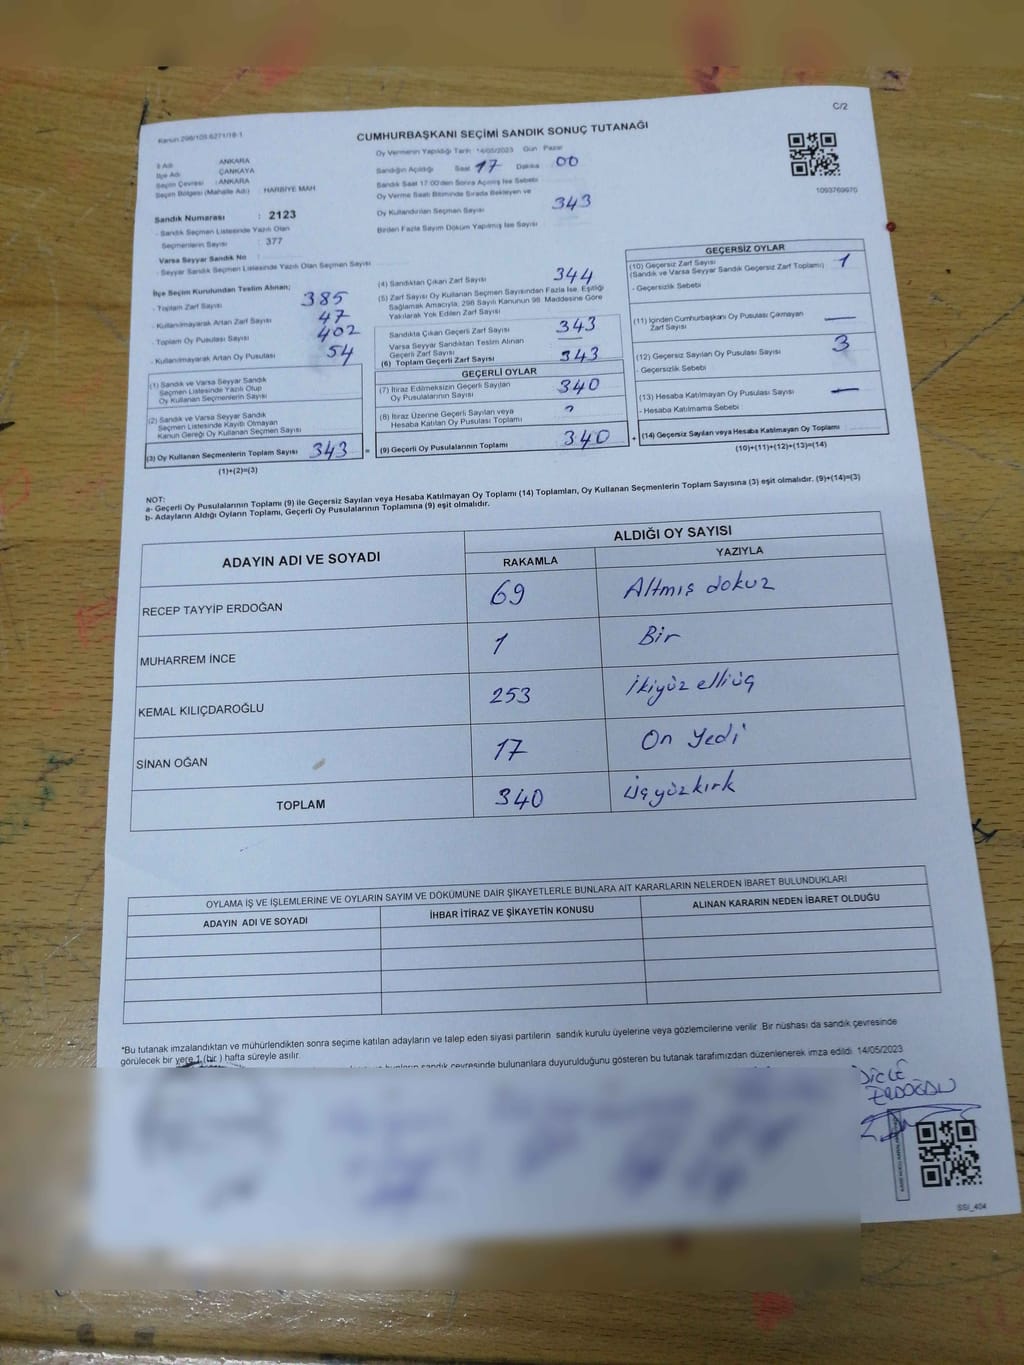 C/2
Kanun 298/105 6271/18-1
CUMHURBAŞKANI SEÇİMİ SANDIK SONUÇ TUTANAĞI
İl Adı ANKARA
İlçe Adı ÇANKAYA
Seçim Çevresi : ANKARA
Seçim Bölgesi (Mahalle Adı) : HARBİYE MAH
Sandık Numarası : 2123
- Sandık Seçmen Listesinde Yazılı Olan
Seçmenlerin Sayısı : 377
Varsa Seyyar Sandık No
- Seyyar Sandık Seçmen Listesinde Yazılı Olan Seçmen Sayısı
Oy Vermenin Yapıldığı Tarih : 14/05/2023 Gün Pazar
Sandığın Açıldığı Saat 17 Dakika 00
Sandık Saat 17:00'den Sonra Açılmış İse Sebebi
Oy Verme Saati Bitiminde Sırada Bekleyen ve
Oy Kullandırılan Seçmen Sayısı 343
Birden Fazla Sayım Döküm Yapılmış İse Sayısı
1093769970
İlçe Seçim Kurulundan Teslim Alınan;
- Toplam Zarf Sayısı 385
- Kullanılmayarak Artan Zarf Sayısı 47
Toplam Oy Pusulası Sayısı 402
- Kullanılmayarak Artan Oy Pusulası 54
(1) Sandık ve Varsa Seyyar Sandık
Seçmen Listesinde Yazılı Olup
Oy Kullanan Seçmenlerin Sayısı
(2) Sandık ve Varsa Seyyar Sandık
Seçmen Listesinde Kayıtlı Olmayan
Kanun Gereği Oy Kullanan Seçmen Sayısı
(3) Oy Kullanan Seçmenlerin Toplam Sayısı 343 =
(1)+(2)=(3)
(4) Sandıktan Çıkan Zarf Sayısı 344
(5) Zarf Sayısı Oy Kullanan Seçmen Sayısından Fazla İse, Eşitliği
Sağlamak Amacıyla; 298 Sayılı Kanunun 98. Maddesine Göre
Yakılarak Yok Edilen Zarf Sayısı
Sandıkta Çıkan Geçerli Zarf Sayısı 343
Varsa Seyyar Sandıktan Teslim Alınan
Geçerli Zarf Sayısı
(6) Toplam Geçerli Zarf Sayısı 343
GEÇERLİ OYLAR
(7) İtiraz Edilmeksizin Geçerli Sayılan
Oy Pusulalarının Sayısı 340
(8) İtiraz Üzerine Geçerli Sayılan veya
Hesaba Katılan Oy Pusulası Toplamı
(9) Geçerli Oy Pusulalarının Toplamı 340 +
GEÇERSİZ OYLAR
(10) Geçersiz Zarf Sayısı
(Sandık ve Varsa Seyyar Sandık Geçersiz Zarf Toplamı) 1
- Geçersizlik Sebebi
(11) İçinden Cumhurbaşkanı Oy Pusulası Çıkmayan
Zarf Sayısı —
(12) Geçersiz Sayılan Oy Pusulası Sayısı 3
- Geçersizlik Sebebi
(13) Hesaba Katılmayan Oy Pusulası Sayısı —
- Hesaba Katılmama Sebebi
(14) Geçersiz Sayılan veya Hesaba Katılmayan Oy Toplamı
(10)+(11)+(12)+(13)=(14)
NOT:
a- Geçerli Oy Pusulalarının Toplamı (9) ile Geçersiz Sayılan veya Hesaba Katılmayan Oy Toplamı (14) Toplamları, Oy Kullanan Seçmenlerin Toplam Sayısına (3) eşit olmalıdır. (9)+(14)=(3)
b- Adayların Aldığı Oyların Toplamı, Geçerli Oy Pusulalarının Toplamına (9) eşit olmalıdır.
ADAYIN ADI VE SOYADI ALDIĞI OY SAYISI
RAKAMLA YAZIYLA
RECEP TAYYİP ERDOĞAN 69 Altmış dokuz
MUHARREM İNCE 1 Bir
KEMAL KILIÇDAROĞLU 253 İkiyüz elliüç
SİNAN OĞAN 17 On Yedi
TOPLAM 340 üçyüzkırk
OYLAMA İŞ VE İŞLEMLERİNE VE OYLARIN SAYIM VE DÖKÜMÜNE DAİR ŞİKAYETLERLE BUNLARA AİT KARARLARIN NELERDEN İBARET BULUNDUKLARI
ADAYIN ADI VE SOYADI İHBAR İTİRAZ VE ŞİKAYETİN KONUSU ALINAN KARARIN NEDEN İBARET OLDUĞU
*Bu tutanak imzalandıktan ve mühürlendikten sonra seçime katılan adayların ve talep eden siyasi partilerin sandık kurulu üyelerine veya gözlemcilerine verilir. Bir nüshası da sandık çevresinde
görülecek bir yere 1 (bir ) hafta süreyle asılır.
sandık çevresinde bulunanlara duyurulduğunu gösteren bu tutanak tarafımızdan düzenlenerek imza edildi. 14/05/2023
DİCLE
ERDOĞDU
SSI_404